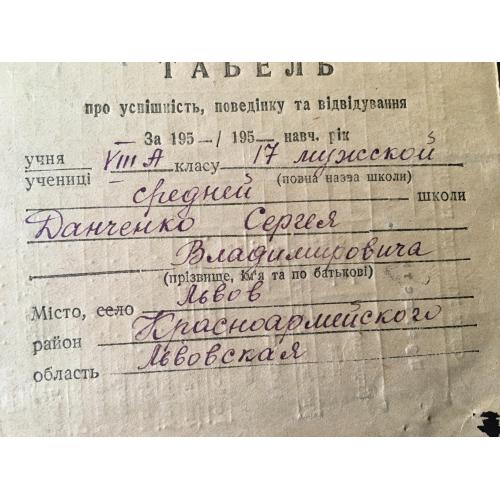 ТАБЕЛЬ
про успішність, поведінку та відвідування
За 195 — / 195 — навч. рік
учня VIII А класу 17 мужской
учениці (повна назва школи)
средней школи
Данченко Сергея
Владимировича
(прізвище, ім'я та по батькові)
Місто, село Львов
район Красноармейского
область Львовская